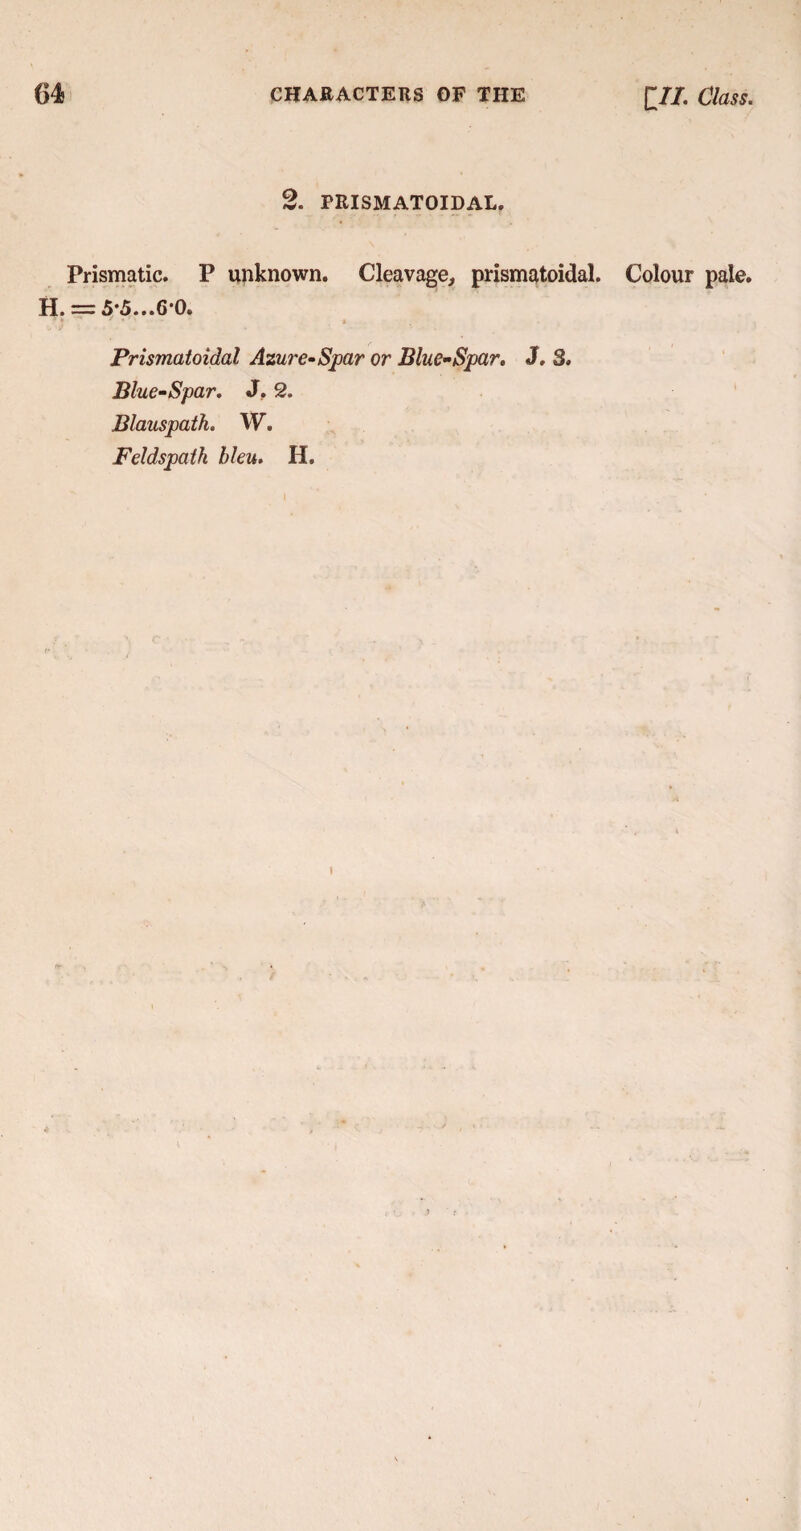 64 CHARACTERS OF THE [II. Class.
2. PRISMATOIDAL.
Prismatic. P unknown. Cleavage, prismatoidal. Colour pale.
H. = 5·5...6·0.
Prismatoidal Azure-Spar or Blue-Spar. J. 3.
Blue-Spar. J. 2.
Blauspath. W.
Feldspath bleu. H.